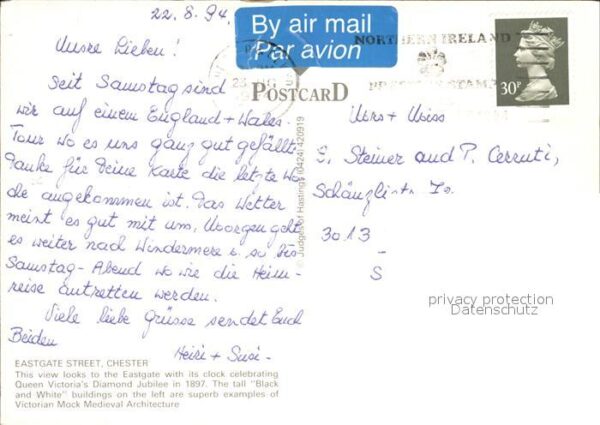 22.8.94.
By air mail
Par avion
NORTHERN IRELAND
30P
POSTCARD
Unsre Lieben!
Seit Samstag sind
wir auf einem England + Wales.
Tour wo es uns ganz gut gefällt.
Danke für Deine Karte die letzte Wo
che angekommen ist. Das Wetter
meint es gut mit um, Morgen geht
es weiter nach Windermere u. so bis
Samstag-Abend wo wir die Heim-
reise antretten werden.
Viele liebe Grüsse sendet Euch
Beiden
Heiri + Susi -
© Judges of Hastings (0424) 420919
Mrs + Miss
E. Steiner and P. Cerruti,
Schänzlistr
3013
-
S
privacy protection
Datenschutz
EASTGATE STREET, CHESTER
This view looks to the Eastgate with its clock celebrating
Queen Victoria's Diamond Jubilee in 1897. The tall "Black
and White" buildings on the left are superb examples of
Victorian Mock Medieval Architecture